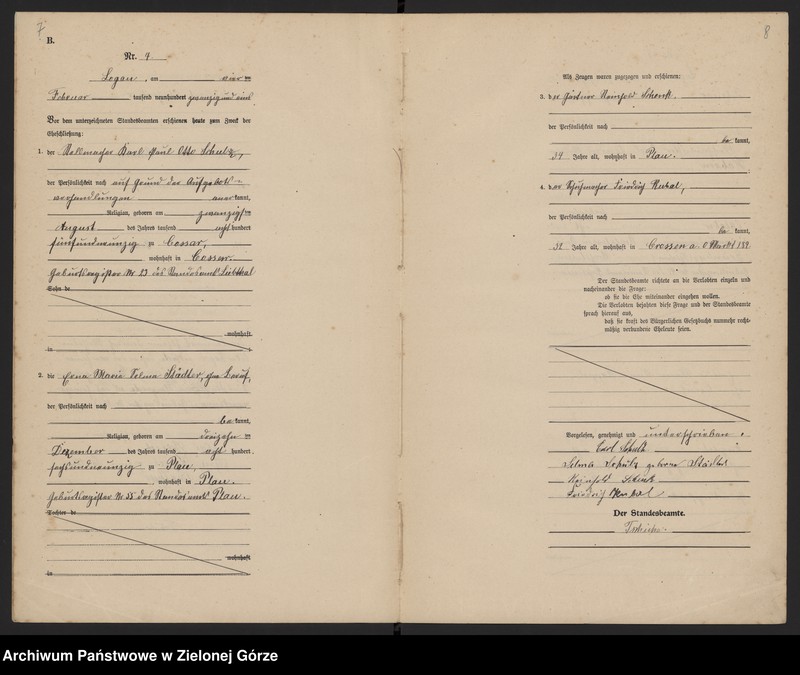 7
B.
Nr. 4
Logau, am vier ten
Februar tausend neunhundert zwanzig und eins
Vor dem unterzeichneten Standesbeamten erschienen heute zum Zweck der
Eheschließung:
1. der Karl Paul Otto Schulz,
der Persönlichkeit nach auf Grund der Aufgebots-
verhandlungen kannt,
Religion, geboren am zwanzigsten
August des Jahres tausend acht hundert
fünfundneunzig zu Cossar,
wohnhaft in Cossar.
Geburtsregister Nr. 23 des Standesamts Liebthal
Sohn de
wohnhaft
in
2. die Erna Marie Selma Städter, ohne Beruf,
der Persönlichkeit nach
be kannt,
Religion, geboren am dreizehn ten
Dezember des Jahres tausend acht hundert
sechsundneunzig zu Plau,
wohnhaft in Plau.
Geburtsregister Nr. 55 des Standesamts Plau.
Tochter de
wohnhaft
in
8
Als Zeugen waren zugezogen und erschienen:
3. der Gärtner Reinhold Schenk,
der Persönlichkeit nach
be kannt,
34 Jahre alt, wohnhaft in Plau.
4. der Schuhmacher Friedrich
der Persönlichkeit nach
be kannt,
32 Jahre alt, wohnhaft in Crossen a. O.
Der Standesbeamte richtete an die Verlobten einzeln und
nacheinander die Frage:
ob sie die Ehe miteinander eingehen wollen.
Die Verlobten bejahten diese Frage und der Standesbeamte
sprach hierauf aus,
daß sie kraft des Bürgerlichen Gesetzbuchs nunmehr recht-
mäßig verbundene Eheleute seien.
Vorgelesen, genehmigt und unterschrieben.
Carl Schulz
Selma Schulz geborene Städter
Reinhold Schenk
Friedrich
Der Standesbeamte.
Archiwum Państwowe w Zielonej Górze